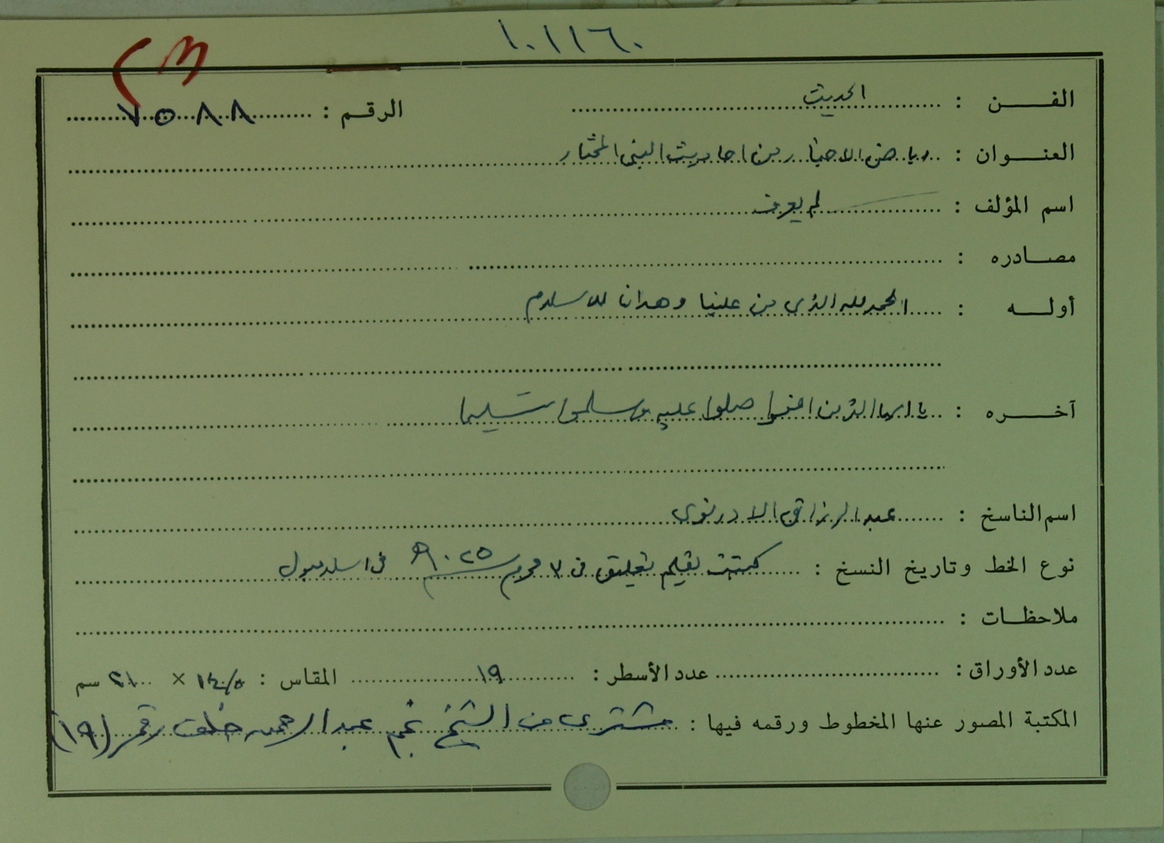 ١٠١١٦٠
الفن : الحديث الرقم : ٧٥٨٨
العنوان : رياض الاخيار من احاديث النبي المختار
اسم المؤلف : لم يعرف
مصادره :
أوله : الحمد لله الذى من علينا وهدانا للاسلام
آخره : يا ايها الذين امنوا صلوا عليه وسلموا تسليما
اسم الناسخ : عبد الرزاق الادرنوى
نوع الخط وتاريخ النسخ : كتبت بقلم تعليق فى ٧ محرم ١٠٢٥هـ فى اسلامبول
ملاحظات :
عدد الأوراق : عدد الأسطر : ١٩ المقاس : ١٤/٥ × ٢١ سم
المكتبة المصور عنها المخطوط ورقمه فيها : مشترى من الشيخ نجم عبد الرحمن خلف رقم (١٩)